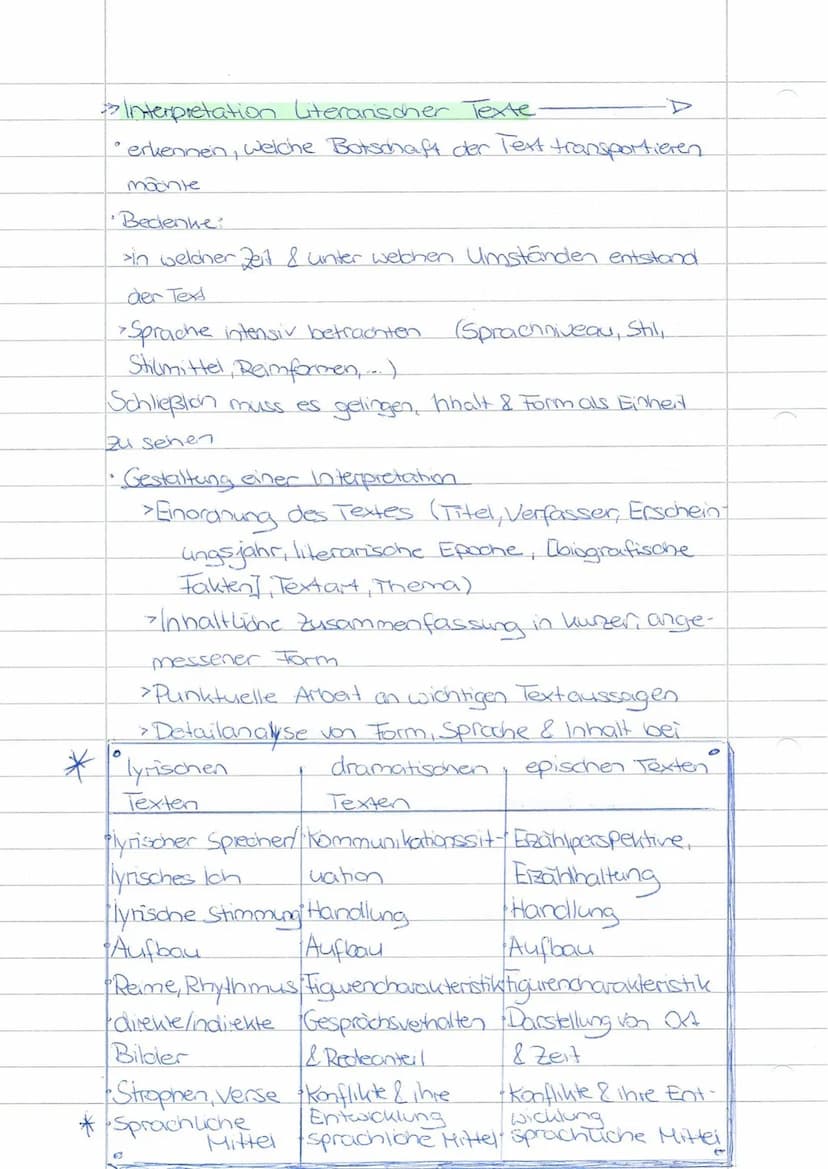 » Interpretation literarischer Texte
• erkennen, welche Botschaft der Text transportieren
möchte
• Bedenke:
>in welcher Zeit & unter welchen Umständen entstand
der Text
>Sprache intensiv betrachten (Sprachniveau, Stil,
Stilmittel, Reimformen, ...)
Schließlich muss es gelingen, Inhalt & Form als Einheit
zu sehen
• Gestaltung einer Interpretation
>Einordnung des Textes (Titel, Verfasser, Erschein-
ungsjahr, literarische Epoche, [biografische
Fakten], Textart, Thema)
>Inhaltliche Zusammenfassung in kurzer, ange-
messener Form
>Punktuelle Arbeit an wichtigen Textaussagen
>Detailanalyse von Form, Sprache & Inhalt bei
* lyrischen , dramatischen , epischen Texten
Texten Texten
• lyrischer Sprecher/ • Kommunikationssit- • Erzählperspektive,
lyrisches Ich uation Erzählhaltung
• lyrische Stimmung • Handlung • Handlung
• Aufbau • Aufbau • Aufbau
• Reime, Rhythmus • Figurencharakteristik • Figurencharakteristik
• direkte/indirekte • Gesprächsverhalten • Darstellung von Ort
Bilder & Redeanteil & Zeit
• Strophen, Verse • Konflikte & ihre • Konflikte & ihre Ent-
* • Sprachliche Entwicklung wicklung
Mittel • sprachliche Mittel • sprachliche Mittel